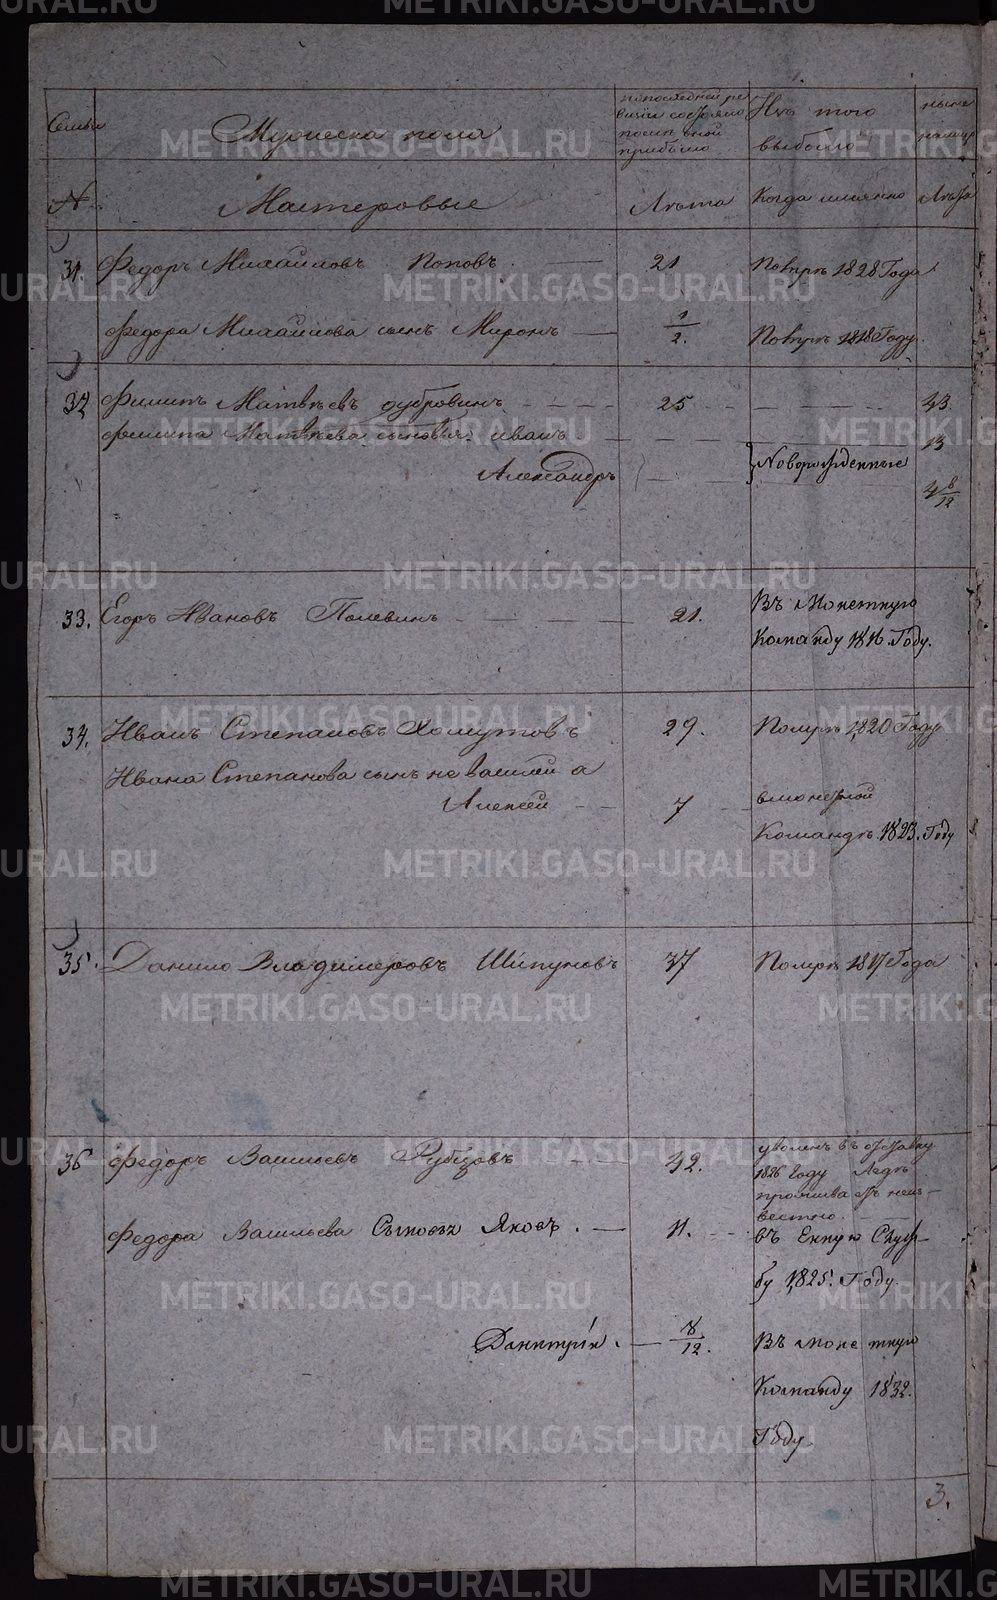 METRIKI.GASO-URAL.RU
Семьи
Мужеска пола
по последней ре
визіи состояло
и после оной
прибыло
Изъ того
выбыло
ныне
№
Мастеровые
Лѣта
Когда имянно
Лѣта
31. Федоръ Михайловъ Поповъ 21 Померъ 1828 Года
Федора Михайлова сынъ Миронъ 1/2. Померъ 1818 Году.
32 Филипъ Матвѣевъ Дубровинъ 25 43
Филипа Матвѣева сыновья: Иванъ 13
Александръ Новорожденные 4 8/12
33. Егоръ Ивановъ Полевинъ 21. Въ Монетную
Команду 1816. Году.
34. Иванъ Степановъ Хомутовъ 29. Померъ 1820 Году
Ивана Степанова сынъ не Василей а
Алексей 7 в монетной
Командѣ 1823. Году
35. Данило Владимеровъ Шипуновъ 37 Померъ 1817 Года
36 Федоръ Васильевъ Рубцовъ 42. уволенъ въ отставку
1826 Году Лѣдѣ
проживаетъ неиз-
вестно.
Федора Васильева Сыновья Яковъ. 11. въ Енную Служ-
бу 1825. Году.
Дмитрій. 8/12. Въ монетную
Команду 1832.
Году
3.